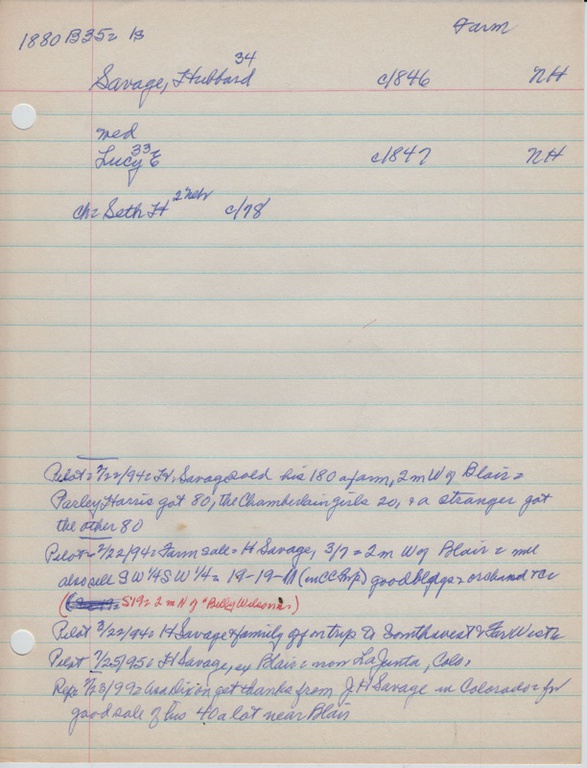 Farm
1880 B35= 1s
34
Savage, Hubbard c/846 NH
med
33
Lucy E c/847 NH
ch= Seth H 2 Neb c/78
Pilot= 2/22/94= H. Savage sold his 180 a farm, 2 m W of Blair=
Parley Harris got 80, the Chamberlain girls 20, & a stranger got
the other 80
Pilot= 2/22/94= Farm sale= H Savage, 3/7= 2 m W of Blair=
also sell SW 1/4 SW 1/4= 19-19-11 (in CC Prp) good bldgs= orchard &c
( S19= 2 m N of "Billy Wilsons")
Pilot 3/22/94= H Savage & family off on trip to Southwest & Far West=
Pilot 7/25/95= H Savage, ex Blair= now LaJunta, Colo,
Rep= 7/28/99= Asa Dixon get thanks from J H Savage in Colorado= for
good sale of his 40 a lot near Blair